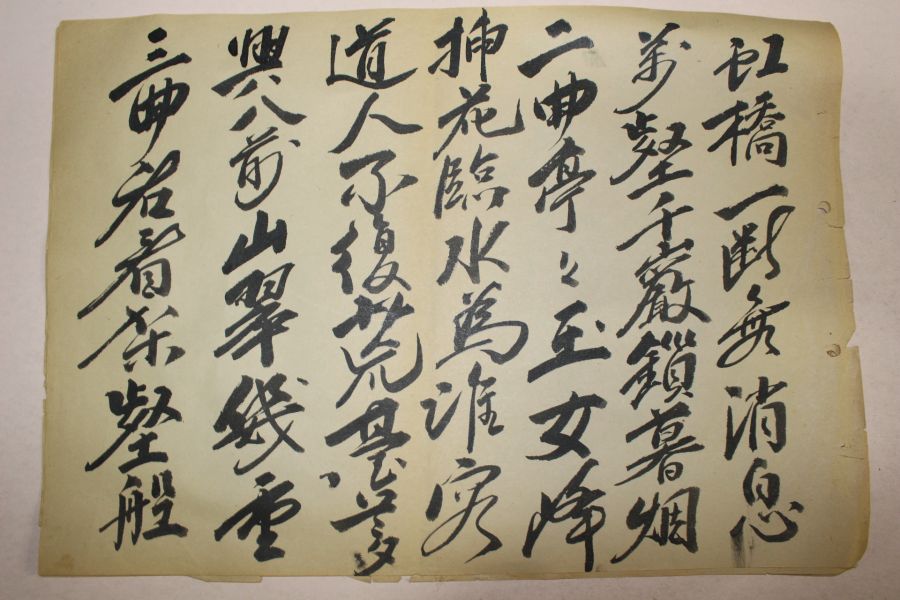 虹橋一斷無消息
萬壑千巖鎖暮烟
二曲亭々玉女峰
挿花臨水為誰容
道人不復荒臺夢
興入前山翠幾重
三曲君看架壑船